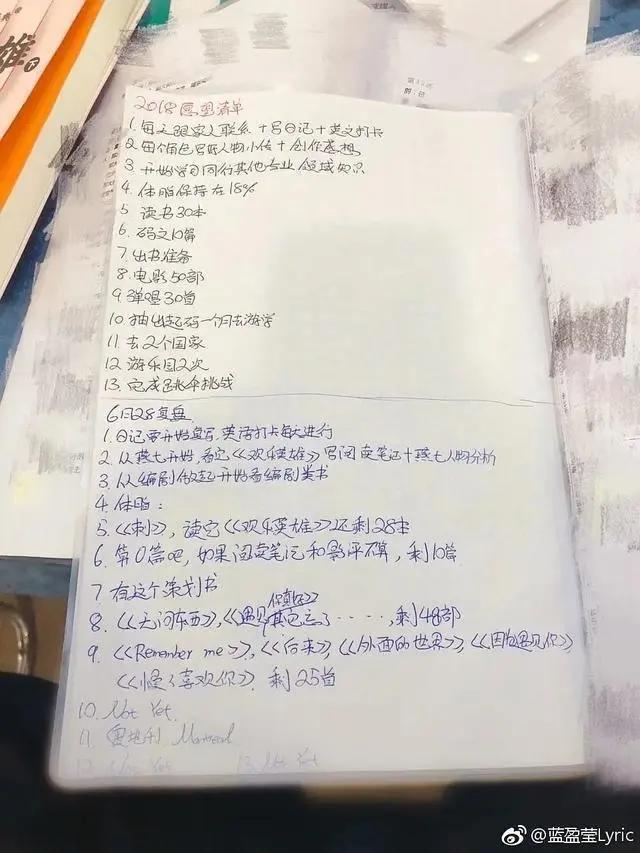 雄
下
2018愿望清单
1. 每天跟家人联系+写日记+英文打卡
2. 每个角色写好人物小传+创作感想
3. 开始学习同行其他专业领域知识
4. 体脂保持在18%
5 读书30本
6. 码文10篇
7 出书准备
8. 电影50部
9. 弹唱30首
10 抽出起码一个月去游学
11 去2个国家
12 游乐园2次
13. 完成跳伞挑战
6月28复盘
1. 日记要开始复写,英语打卡每天进行
2. 从燕七开始,看完《欢乐英雄》写阅读笔记+燕七人物分析
3. 从编剧做起开始看编剧类书
4 体脂:
5 《刺》,读完《欢乐英雄》还剩28本
6. 第0篇吧,如果阅读笔记和影评不算,剩10篇
7 有这个策划书
8. 《无问东西》,《遇见你真好》其它忘了·····,剩48部
9. 《Remember me》,《后来》,《外面的世界》,《因为遇见你》
《怪你喜欢你》剩25首
10. Not Yet
11. 奥地利 Montreal
12 Not Yet 13. Not Yet
@蓝盈莹Lyric